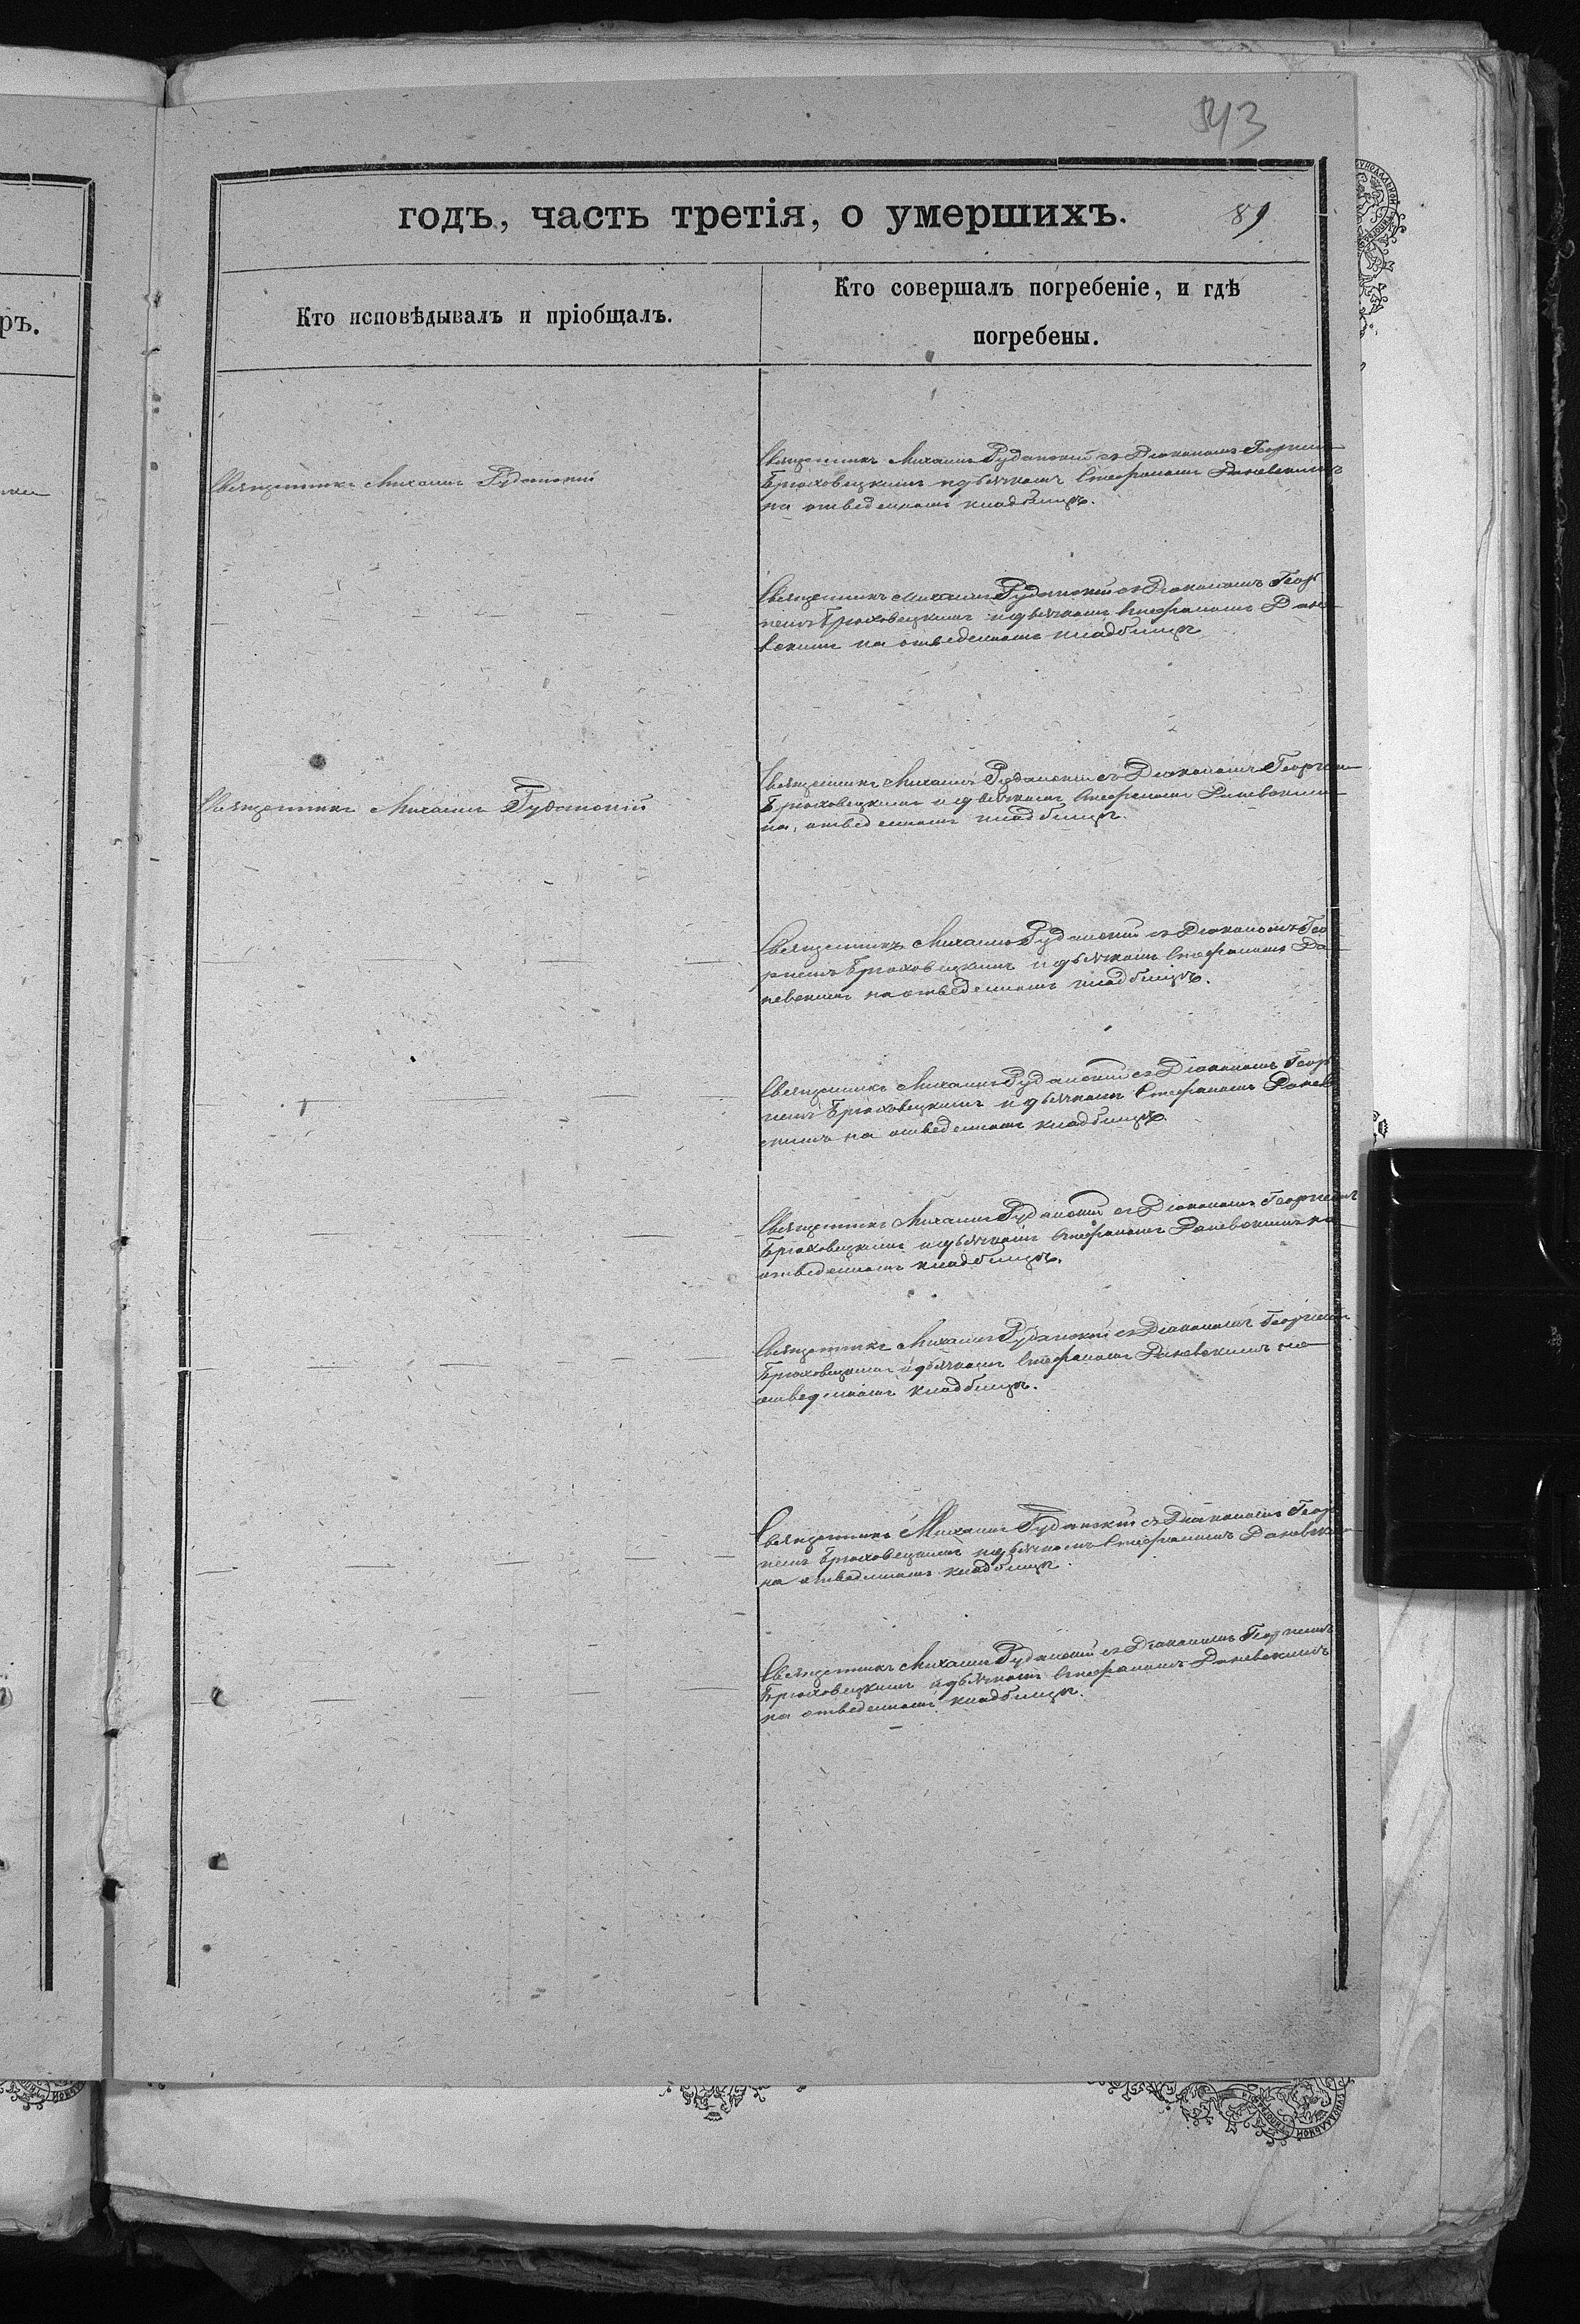 543
годъ, часть третія, о умершихъ.
89
Кто исповѣдывалъ и пріобщалъ.
Кто совершалъ погребеніе, и гдѣ
погребены.
ръ.
Священникъ Михаилъ Руданскій
Священникъ Михаилъ Руданскій съ Діакономъ Георгіем
Брюховецкимъ и дьячкомъ Стефаномъ Даневскимъ
на отведенномъ кладбищѣ.
Священникъ Михаилъ Руданскій съ Діакономъ Геор
гіемъ Брюховецкимъ и дьячкомъ Стефаномъ Дане
вскимъ на отведенномъ кладбищѣ
Священникъ Михаилъ Руданскій
Священникъ Михаилъ Руданскій съ Діакономъ Георгіем
Брюховецкимъ и дьячкомъ Стефаномъ Даневским
на отведенномъ кладбищѣ.
Священникъ Михаилъ Руданскій съ Діакономъ Гео
ргіемъ Брюховецкимъ и дьячкомъ Стефаномъ Да
невскимъ на отведенномъ кладбищѣ.
Священникъ Михаилъ Руданскій съ Діакономъ Геор
гіемъ Брюховецкимъ и дьячкомъ Стефаномъ Данев
скимъ на отведенномъ кладбищѣ.
Священникъ Михаилъ Руданскій съ Діакономъ Георгіемъ
Брюховецкимъ и дьячкомъ Стефаномъ Даневскимъ на
отведенномъ кладбищѣ.
Священникъ Михаилъ Руданскій съ Діакономъ Георгіемъ
Брюховецкимъ и дьячкомъ Стефаномъ Даневскимъ на
отведенномъ кладбищѣ.
Священникъ Михаилъ Руданскій съ Діакономъ Геор
гіемъ Брюховецкимъ и дьячкомъ Стефаномъ Даневским
на отведенномъ кладбищѣ.
Священникъ Михаилъ Руданскій съ Діакономъ Георгіемъ
Брюховецкимъ и дьячкомъ Стефаномъ Даневскимъ
на отведенномъ кладбищѣ.